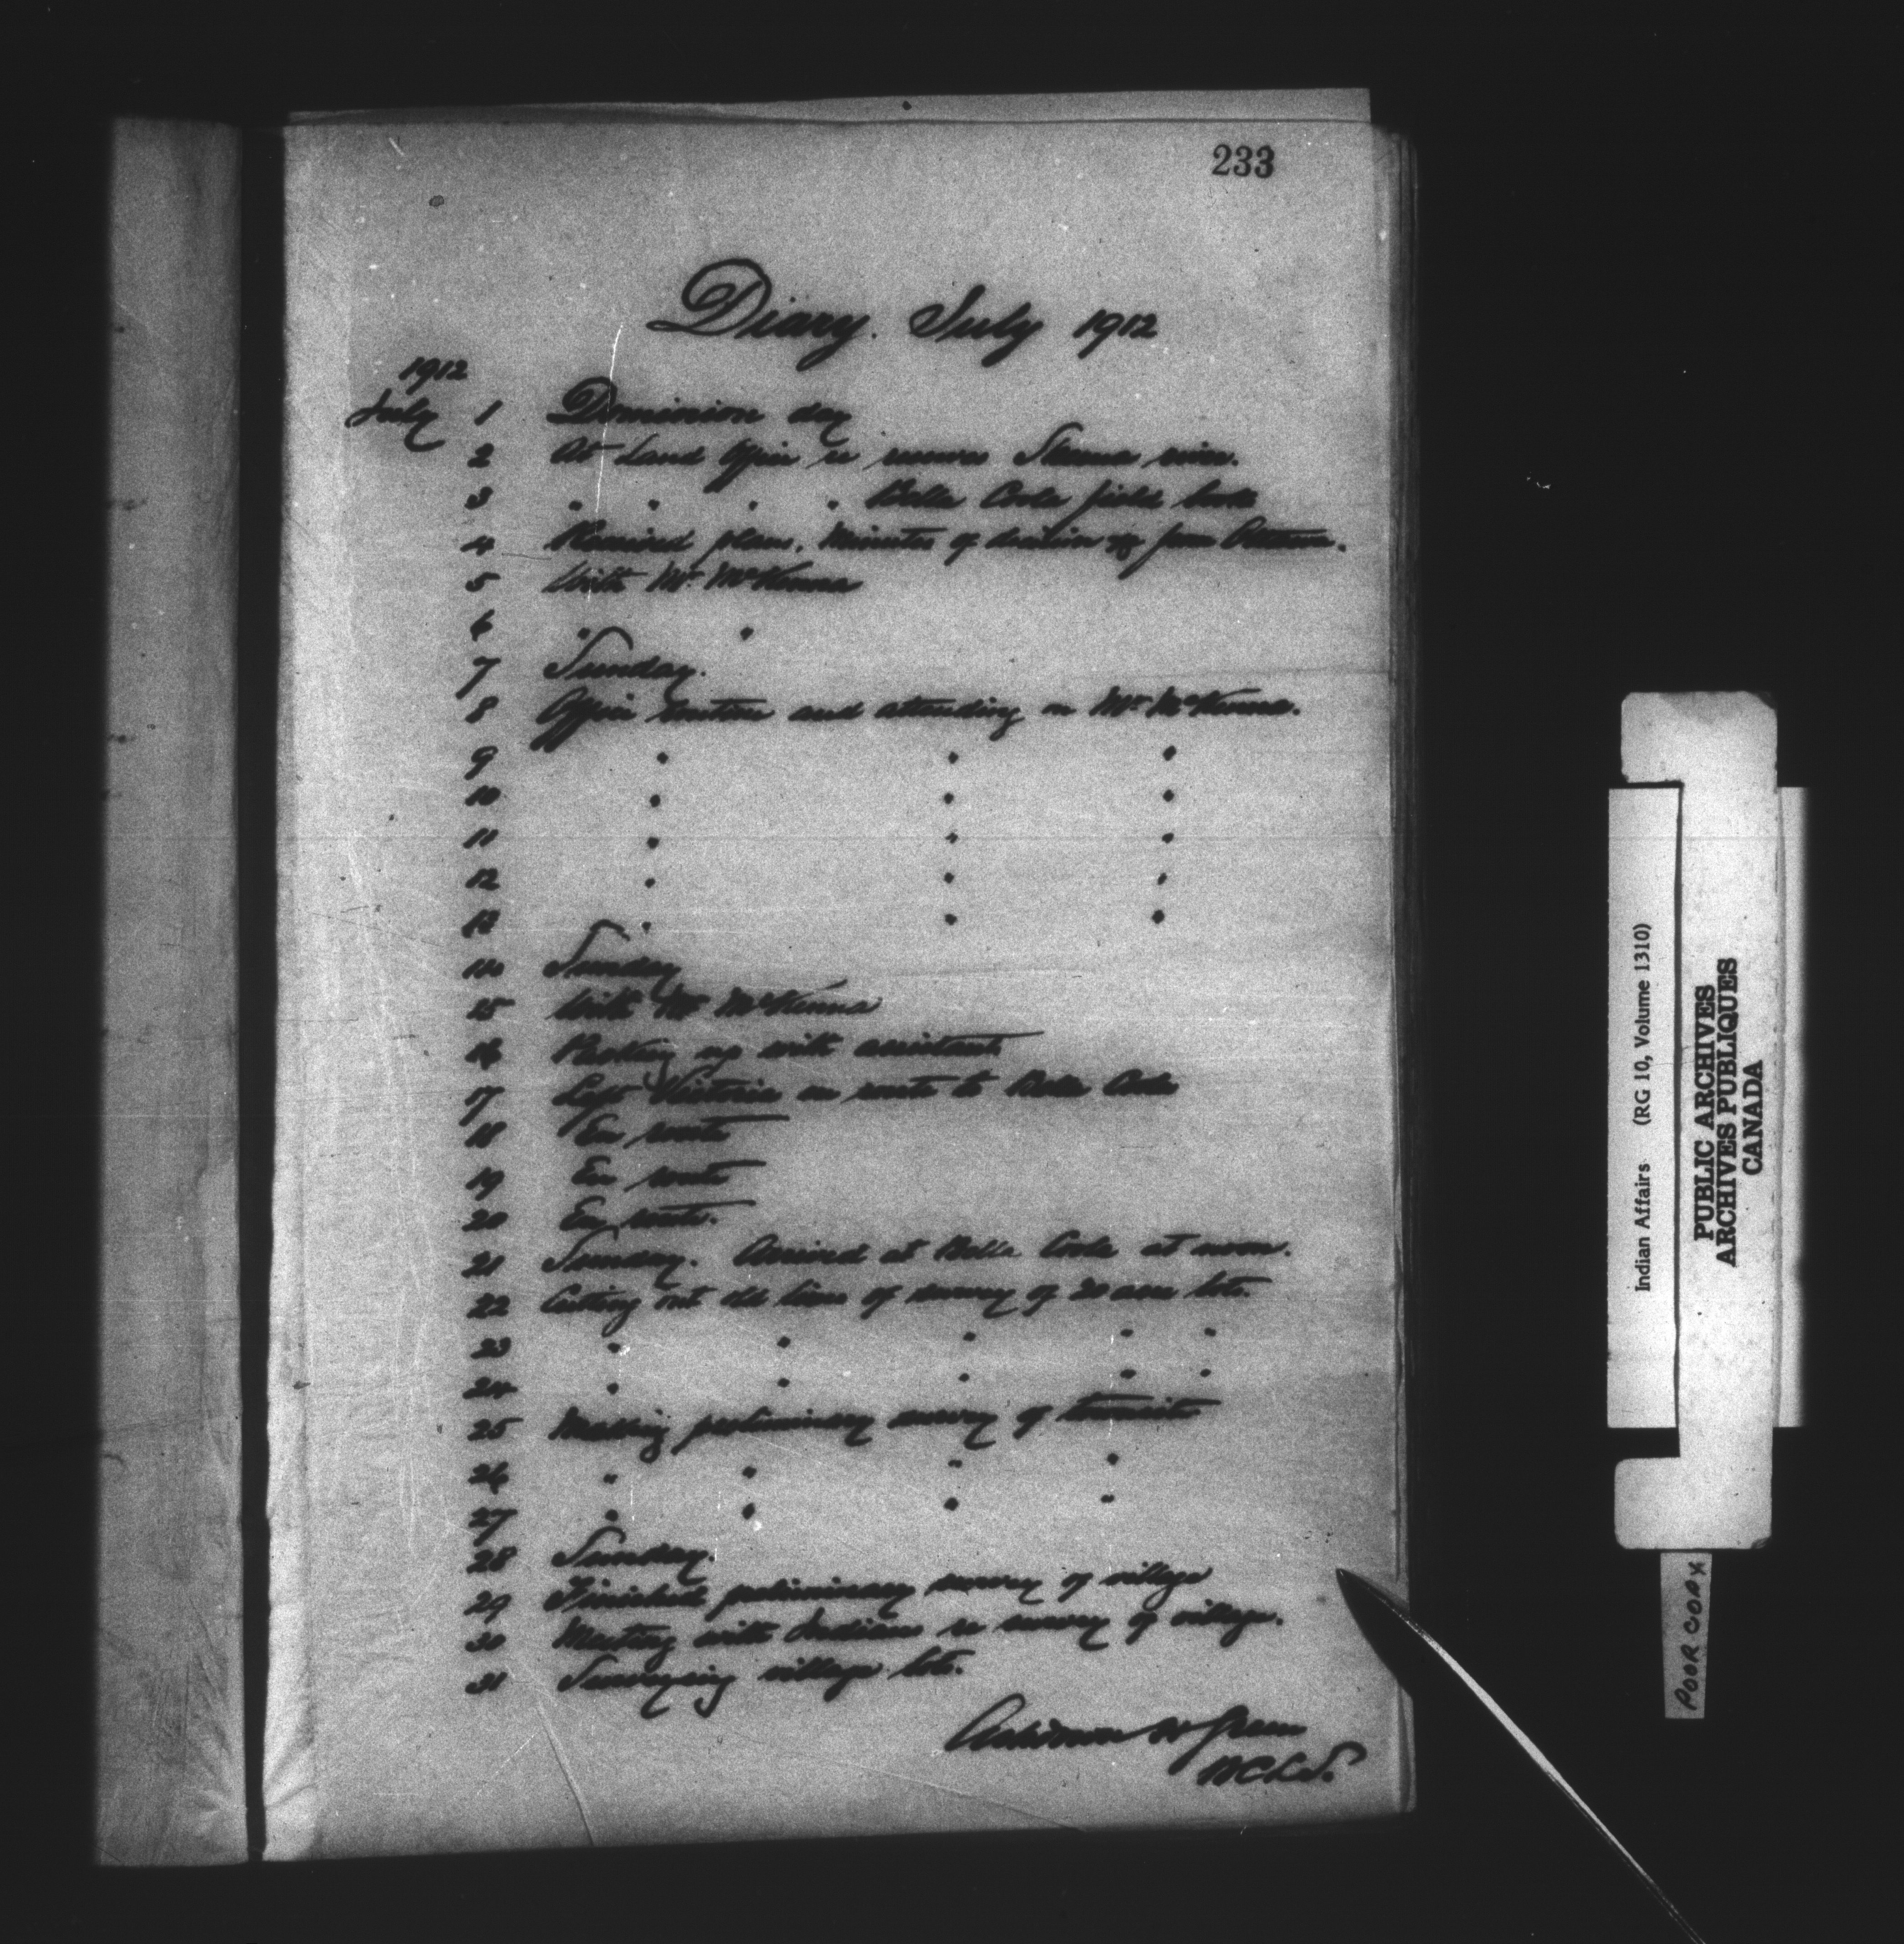 233
Diary. July 1912
1912
July 1 Dominion day
2 At Land Office re reserves Skeena river.
3 " " " " Bella Coola field books
4 Received plans, Minutes of decision etc from Ottawa.
5 With Mr. McKenna
6 " "
7 Sunday.
8 Office routine and attending on Mr. McKenna.
9 " " "
10 " " "
11 " " "
12 " " "
13 " " "
14 Sunday
15 With Mr McKenna
16 Packing up with assistants
17 Left Victoria en route to Bella Coola
18 En route
19 En route
20 En route.
21 Sunday. Arrived at Bella Coola at noon.
22 Cutting out old lines of survey of 20 acre lots.
23 " " " " "
24 " " " " "
25 Making preliminary survey of townsite
26 " " " "
27 " " " "
28 Sunday.
29 Finished preliminary survey of village
30 Meeting with Indians re survey of village.
31 Surveying village lots.
Ashdown H Green
BCLS.
Indian Affairs (RG 10, Volume 1310)
PUBLIC ARCHIVES
ARCHIVES PUBLIQUES
CANADA
POOR COPY